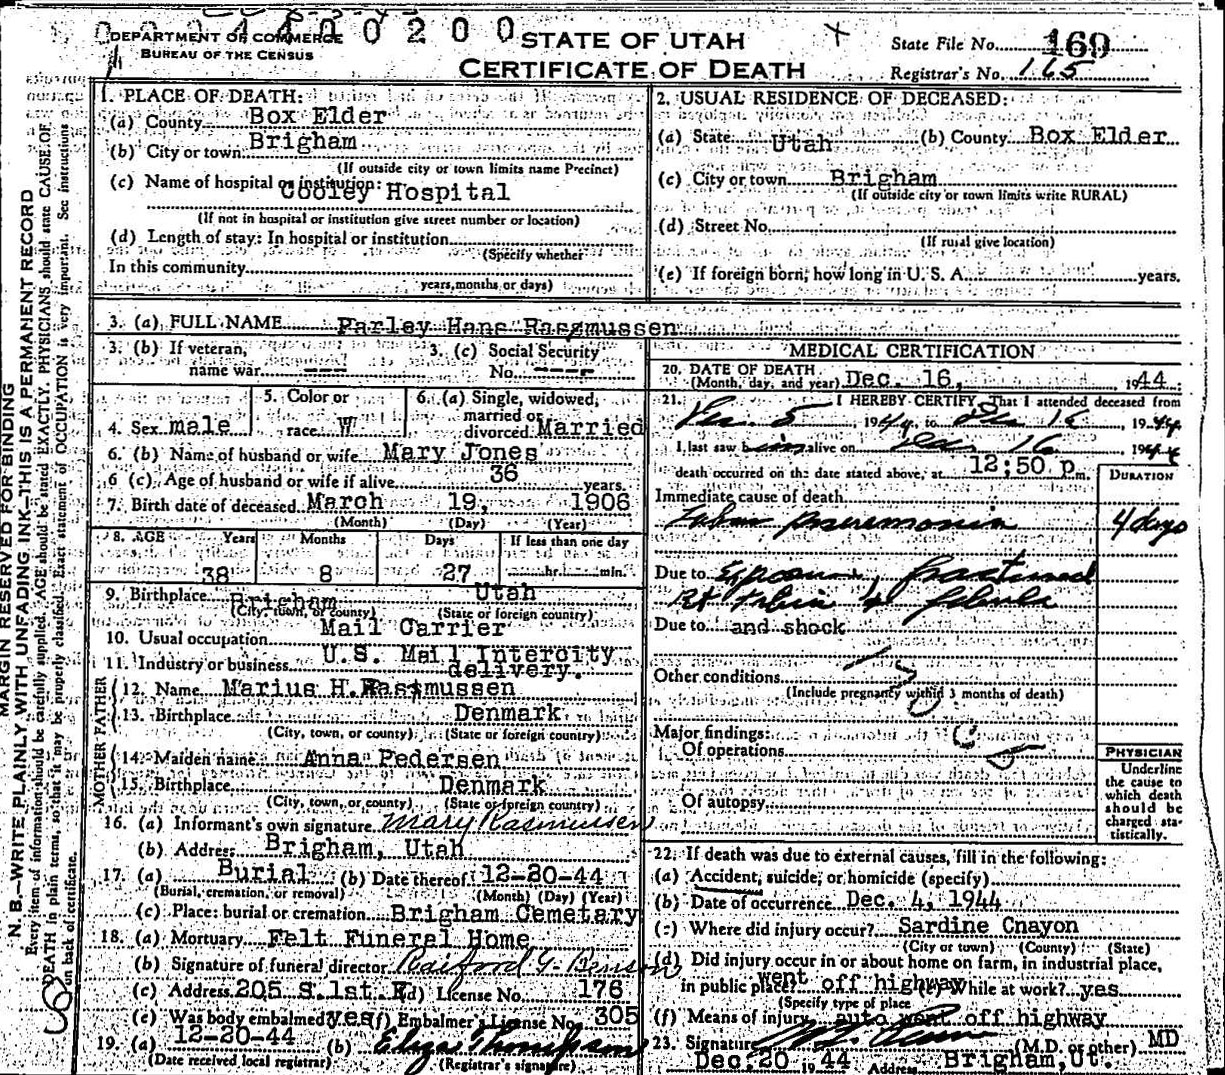 0 0 3 4 4 0 0 2 0 0
DEPARTMENT OF COMMERCE
BUREAU OF THE CENSUS
STATE OF UTAH
CERTIFICATE OF DEATH
State File No. 169
Registrar's No. 165
MARGIN RESERVED FOR BINDING
N. B.—WRITE PLAINLY WITH UNFADING INK—THIS IS A PERMANENT RECORD
Every item of information should be carefully supplied. AGE should be stated EXACTLY. PHYSICIANS should state CAUSE OF
DEATH in plain terms, so that it may be properly classified. Exact statement of OCCUPATION is very important. See instructions
on back of certificate.
1. PLACE OF DEATH:
(a) County Box Elder
(b) City or town Brigham
(If outside city or town limits name Precinct)
(c) Name of hospital or institution:
Cooley Hospital
(If not in hospital or institution give street number or location)
(d) Length of stay: In hospital or institution
(Specify whether
In this community
years, months or days)
2. USUAL RESIDENCE OF DECEASED:
(a) State Utah (b) County Box Elder
(c) City or town Brigham
(If outside city or town limits write RURAL)
(d) Street No.
(If rural give location)
(e) If foreign born, how long in U. S. A. years.
3. (a) FULL NAME Parley Hans Rasmussen
3. (b) If veteran,
name war ---
3. (c) Social Security
No. ----
4. Sex male
5. Color or
race W
6. (a) Single, widowed,
married or
divorced Married
6. (b) Name of husband or wife Mary Jones
6 (c) Age of husband or wife if alive 36 years.
7. Birth date of deceased March 19, 1906
(Month) (Day) (Year)
8. AGE Years Months Days If less than one day
38 8 27 hr. min.
9. Birthplace Brigham Utah
(City, town, or county) (State or foreign country)
10. Usual occupation Mail Carrier
11. Industry or business U.S. Mail Intercity
delivery.
FATHER
12. Name Marius H. Rasmussen
13. Birthplace Denmark
(City, town, or county) (State or foreign country)
MOTHER
14. Maiden name Anna Pedersen
15. Birthplace Denmark
(City, town, or county) (State or foreign country)
16. (a) Informant's own signature Mary Rasmussen
(b) Address Brigham, Utah
17. (a) Burial (b) Date thereof 12-20-44
(Burial, cremation, or removal) (Month) (Day) (Year)
(c) Place: burial or cremation Brigham Cemetary
18. (a) Mortuary Felt Funeral Home
(b) Signature of funeral director
(c) Address 205 S. 1st E (d) License No. 176
(e) Was body embalmed yes (f) Embalmer's License No. 305
19. (a) 12-20-44 (b) Thompson
(Date received local registrar) (Registrar's signature)
MEDICAL CERTIFICATION
20. DATE OF DEATH
(Month, day, and year) Dec. 16, 1944
21. I HEREBY CERTIFY, That I attended deceased from
Dec. 5 1944, to Dec 16, 1944
I last saw him alive on Dec. 16 1944
death occurred on the date stated above, at 12:50 p.m.
DURATION
Immediate cause of death
Lobar pneumonia 4 days
Due to Exposure, fractured
Rt tibia & fibula
Due to and shock
Other conditions
(Include pregnancy within 3 months of death)
Major findings:
Of operations
Of autopsy
PHYSICIAN
Underline
the cause to
which death
should be
charged sta-
tistically.
22. If death was due to external causes, fill in the following:
(a) Accident, suicide, or homicide (specify)
(b) Date of occurrence Dec. 4, 1944
(c) Where did injury occur? Sardine Cnayon
(City or town) (County) (State)
(d) Did injury occur in or about home on farm, in industrial place,
in public place? went off highway (e) While at work? yes
(Specify type of place
(f) Means of injury auto went off highway
23. Signature (M.D. or other) MD
Dec. 20 1944 Address Brigham, Ut.